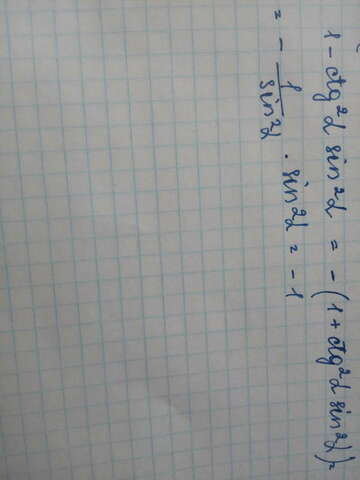 1 - ctg²α sin²α = - (1 + ctg²α sin²α) =
= - 1/sin²α · sin²α = - 1